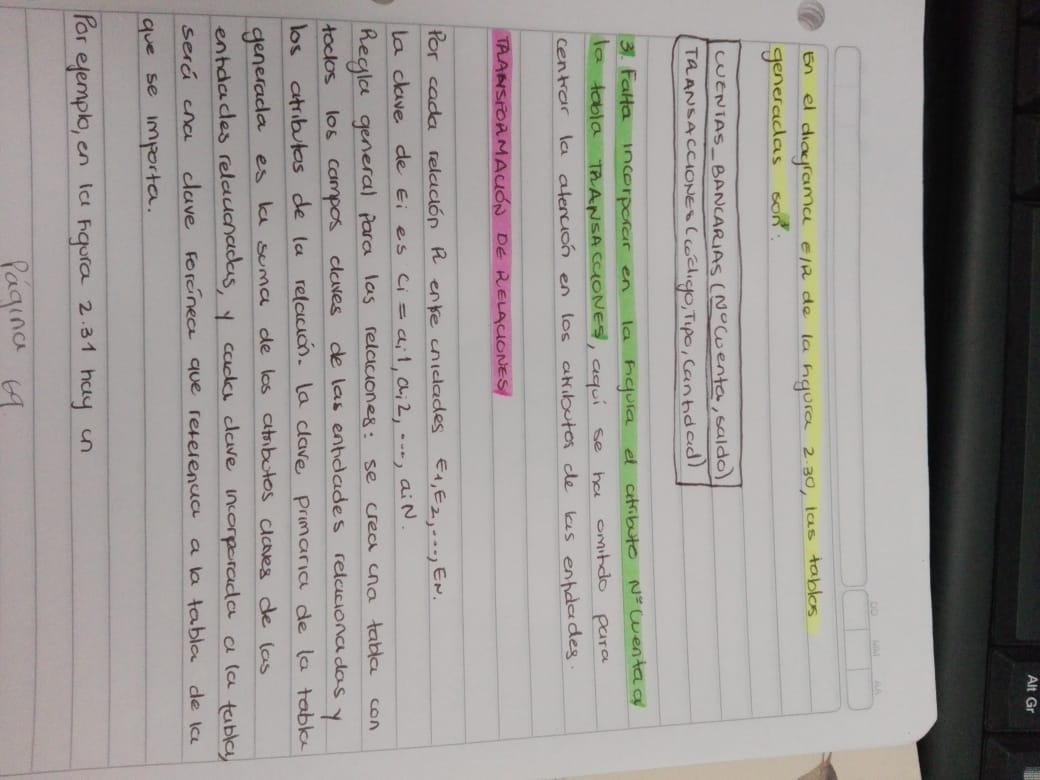 DD MM AA
En el diagrama E/R de la Figura 2.30, las tablas
generadas son:
CUENTAS_BANCARIAS (NºCuenta, saldo)
TRANSACCIONES (código, Tipo, Cantidad)
3. Falta incorporar en la Figura el atributo Nº Cuenta a
la tabla TRANSACCIONES, aquí se ha omitido para
centrar la atención en los atributos de las entidades.
TRANSFORMACIÓN DE RELACIONES
Por cada relación R entre unidades E1, E2, ..., EN.
la clave de Ei es Ci = ai1, ai2, ..., aiN.
Regla general para las relaciones: se crea una tabla con
todos los campos claves de las entidades relacionadas y
los atributos de la relación. La clave primaria de la tabla
generada es la suma de los atributos claves de las
entidades relacionadas, y cada clave incorporada a la tabla,
será una clave Foránea que referencia a la tabla de la
que se importa.
Por ejemplo, en la Figura 2.31 hay un
Página 69
Alt Gr